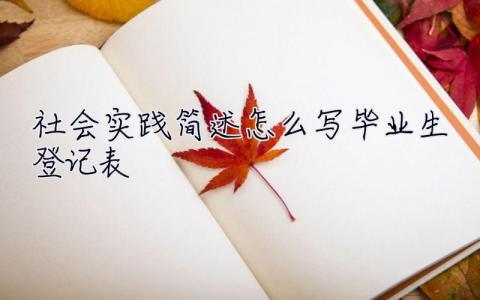 社会实践简述怎么写毕业生
登记表